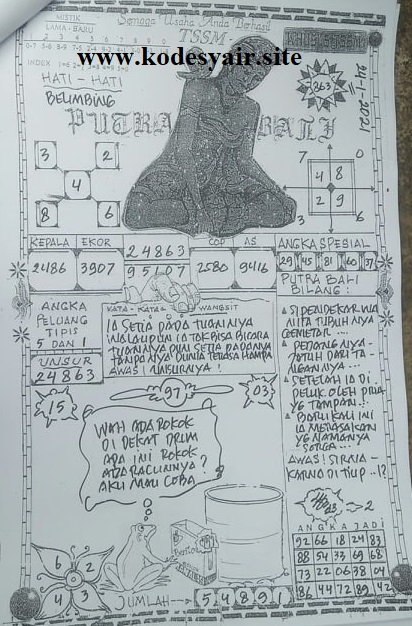 MISTIK
LAMA - BARU
Semoga Usaha Anda Berhasil
TSSM
www.kodesyair.site
INDEX
HATI - HATI
BELIMBING
PUTRA BALI
863
24-11-2021
3 2
4
8 6
7 0
4 8
2 9
3 6
KEPALA EKOR 24863 COP AS ANGKA SPESIAL
2486 3907 95107 2580 9416 29 45 81 60 37
ANGKA
PELUANG
TIPIS
5 DAN 1
UNSUR
24863
KATA - KATA WANGSIT
IA SETIA PADA TUANNYA
WALAUPUN IA TAK BISA BICARA
TUANNYA PUN SETIA PADANYA
TANPA NYA DUNIA TERASA HAMPA
AWAS ! UNSURNYA !
PUTRA BALI
BILANG :
SI PENDEKAR WA
NITA TUBUH NYA
GEMETAR ....
PEDANG NYA -
JATUH DARI TA -
NGAN NYA ...
SETELAH IA DI
PELUK OLEH PRIA
YG TAMPAN !
BARU KALI INI
IA MERASAKAN
YG NAMANYA
SORGA ...
AWAS ! SIRNA -
KARNA DI TIUP ..!?
15
97
03
WAH ADA ROKOK
DI DEKAT DRUM
APA INI ROKOK
ADA RACUNNYA ?
AKU MAU COBA
2
ANGKA JADI
92 66 18 24 83
88 54 33 69 68
73 22 06 38 04
86 44 72 89 42
6 2
4 3
Bentoel
JUMLAH
5 4 8 9 1